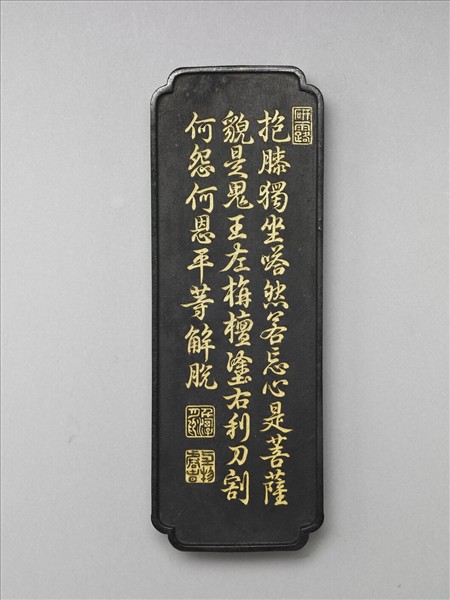 研露
抱膝獨坐嗒然若忘心是菩薩
貌是鬼王左栴檀塗右利刀割
何怨何恩平等解脫